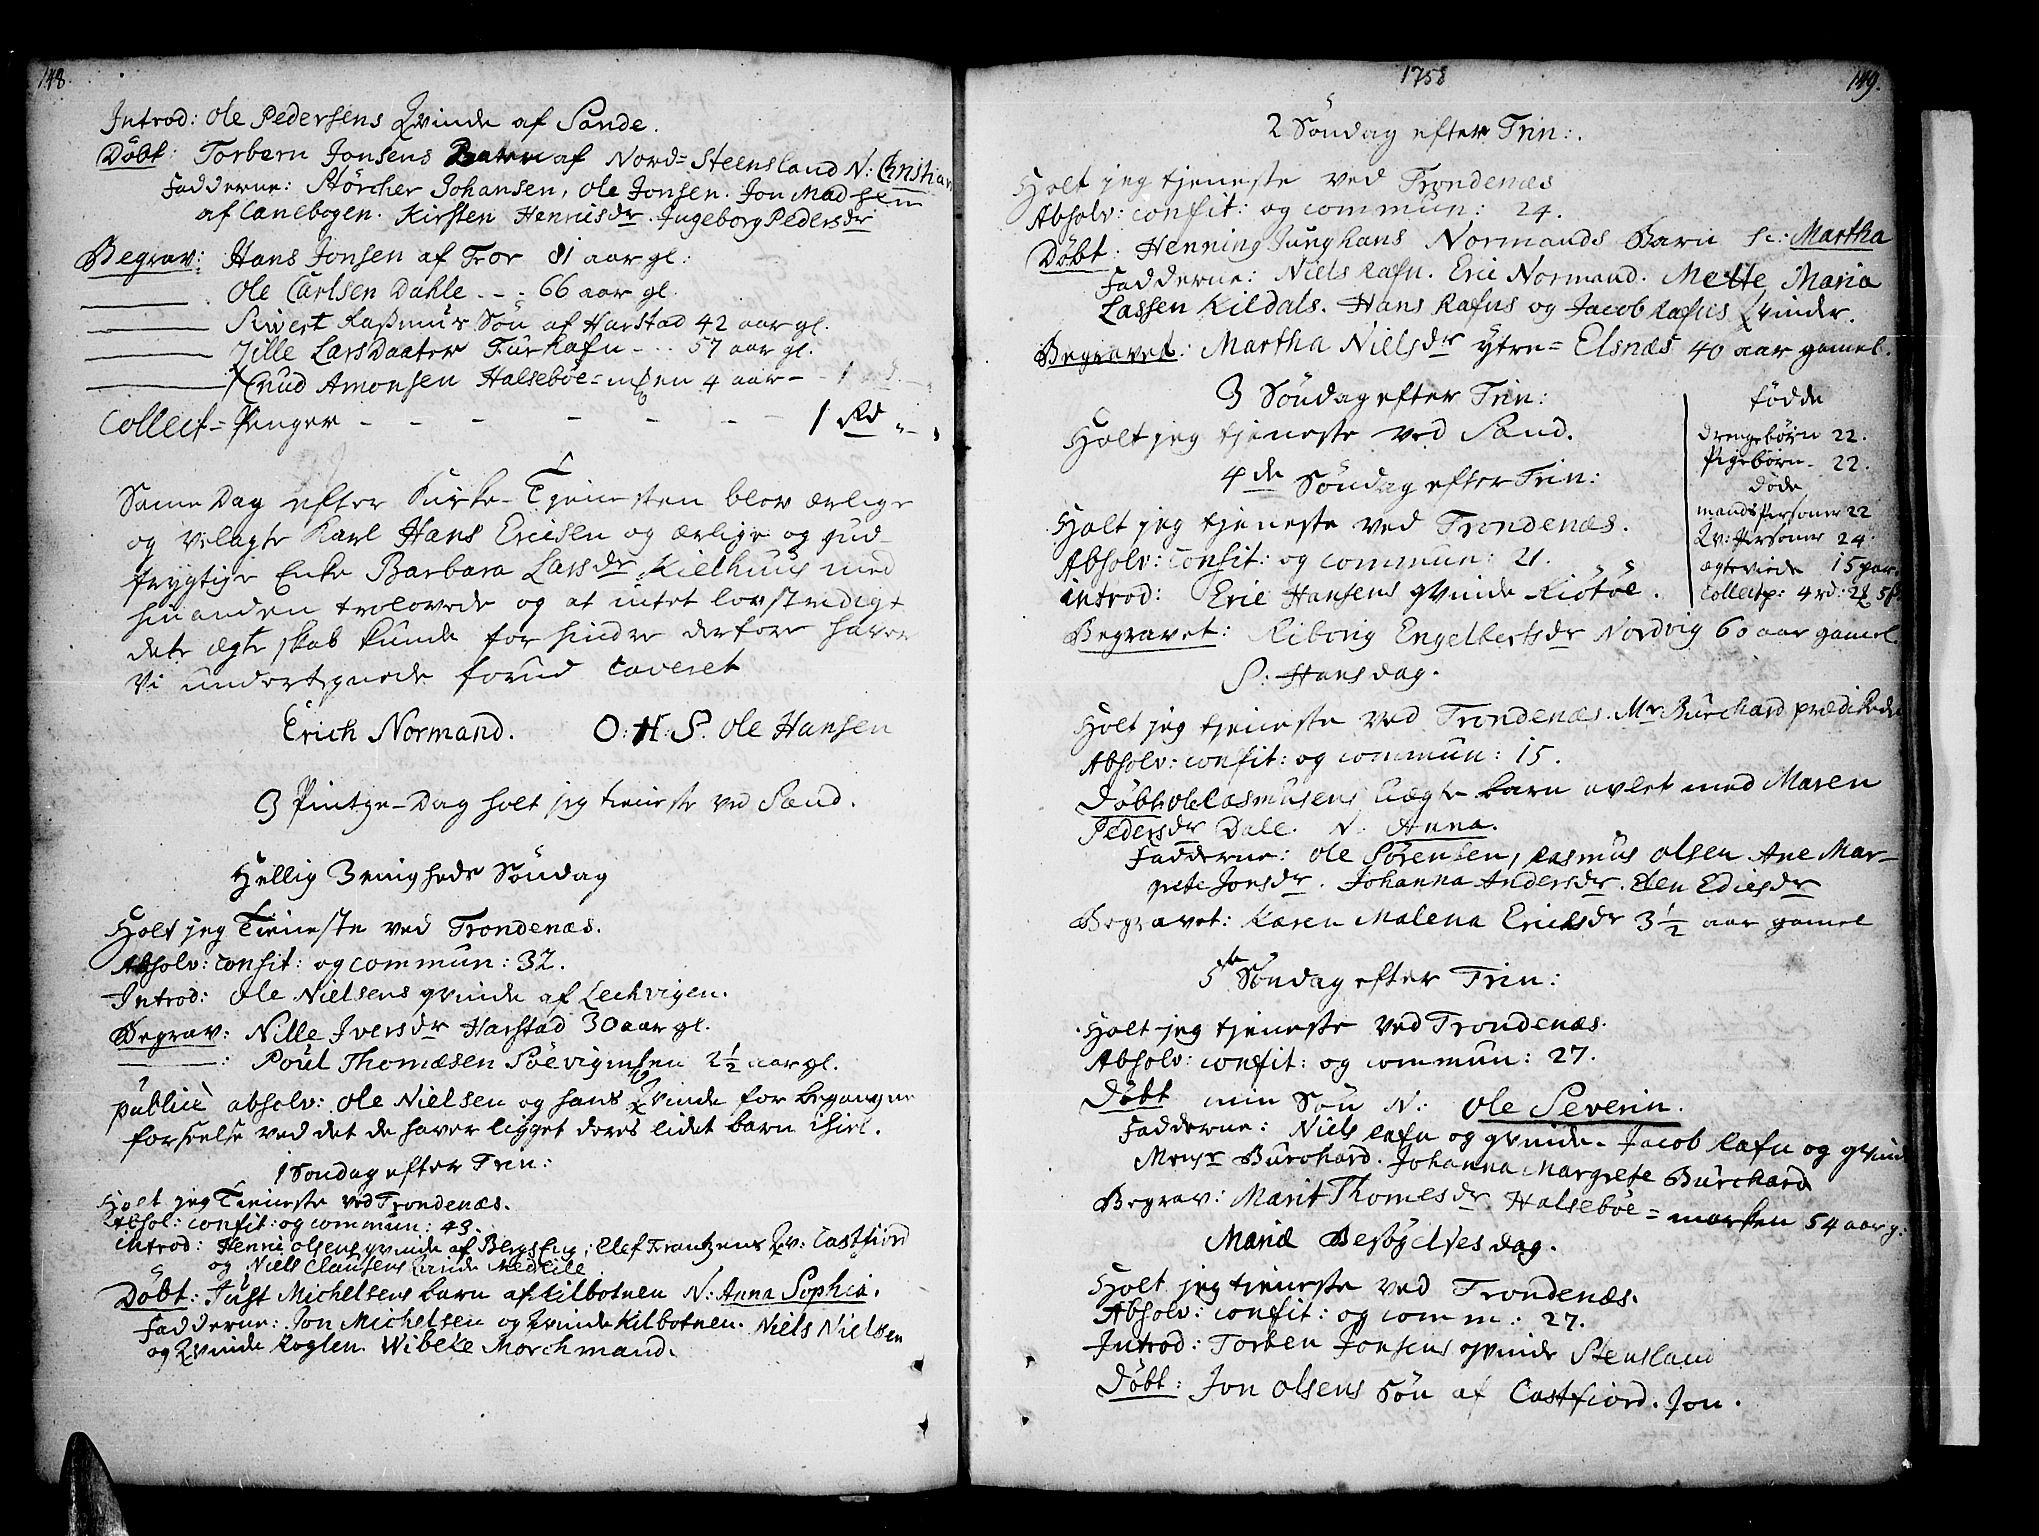 148.
Introd: Ole Pedersens Qvinde af Sande.
Döbt: Torbern Jonsens af Nord=Steensland N: Christian
Fadderne: Störcher Johansen, Ole Jonsen. Jon Madsen
af Canebogen. Kirsten Henricsdr. Ingeborg Pedersdr
Begrav: Hans Jonsen af Tror 81 aar gl:
Ole Carlsen Dahle - - - 66 aar gl.
Sivert Rasmus Sön af Harstad 42 aar gl.
Zille LarsDaater Furhafn - - - 57 aar gl.
Cnud Amonsen Halseböe=m en 4 aar - -
Collect=Penger - - - - - - 1 Rd „ - „
Same Dag efter Kirke-Tjenesten blev ærlige
og velagte Karl Hans Ericsen og ærlige og gud-
frygtige Enke Barbara Larsdr Kielhuus med
hinanden trolovede og at intet lovstredigt
dete ægteskab kunde forhindre derfore haver
Vi undertegnede forud Caveret
Erich Normand. O:H:S. Ole Hansen
3 Pintze-Dag holt jeg tieneste ved Sand.
Hellig 3enigheds Söndag
Holt jeg Tieneste ved Trondenæs.
Absolv: confit: og commun: 32.
Introd: Ole Nielsens qvinde af Lechvigen.
Begrav: Nille Iversdr Harstad 30 aar gl.
: Poül Thomæsen Söevigen 2½ aar gl.
publicè absolv: Ole Nielsen og hans Qvinde for begangne
forseelse ved det de haver ligget deres lidet barn ihiel.
1 Söndag efter Trin:
Holt jeg Tieneste ved Trondenæs.
Absol: confit: og commun: 43.
introd: Henric Olsens qvinde af Bergseng; Elef Frantzens Qv: Castfiord
og Niels Clausens Qvinde Medkile
Döbt: Just Michelsens barn af Kilbotnen N: Anna Sophia.
Fadderne: Jon Michelsen og Qvinde Kilbotnen. Niels Nielsen
og Qvinde Roglen. Wibeke Morchmand.
1758
149.
2 Söndag efter Trin:.
Holt jeg tjeneste ved Trondenæs
Absolv: confit: og commun: 24.
Döbt: Henning Junghans Normands Barn sc: Martha
Fadderne: Niels Rafn. Eric Normand. Mette Maria
Lassen Kildals. Hans Rafns og Jacob Rafns Qvinder.
Begravet: Martha Nielsdr ytre=Elsnæs 40 aar gamel.
3 Söndag efter Trin:
Holt jeg tjeneste ved Sand.
4de Söndag efter Trin:
Holt jeg tjeneste ved Trondenæs.
Absolv: confit: og commun: 21.
introd: Eric Hansens qvinde Riötöe.
födde
drengebörn 22.
Pigebörn - 22.
döde
mandsPersoner 22
Qv:Personer 24.
ægteviede 15 par.
Collectp: 4 rd: 2
Begravet: Riborig Engelbertsdr Nordvig 60 aar gamel.
S: Hans dag.
Holt jeg tjeneste ved Trondenæs. Mr Burchard prædikede
Absolv: confit: og commun: 15.
Döbt Ole Rasmusens Uægte barn avlet med Maren
Pedersdr Dale. N. Anna.
Fadderne: Ole Sørensen, Rasmus Olsen. Ane Mar-
grete Jonsdr. Johanna Andersdr. Elen Ediesdr
Begravet: Karen Malena Ericksdr 3½ aar gamel
5te Söndag efter Trin:
Holt jeg tjeneste ved Trondenæs.
Absolv: confit: og commun: 27.
Döbt min Sön N: Ole Severin.
Fadderne: Niels Rafn og qvinde. Jacob Rafn og qvinde
Monsr Burchard. Johanna Margrete Burchard
Begrav: Marit Thomesdr Halseböe=marken 54 aar g:
Mariæ Besögelses dag.
Holt jeg tjeneste ved Trondenæs.
Absolv: confit: og comm: 27.
Introd: Torben Jonsens qvinde Stensland
Döbt: Jon Olsens Sön af Castfiord. Jon.